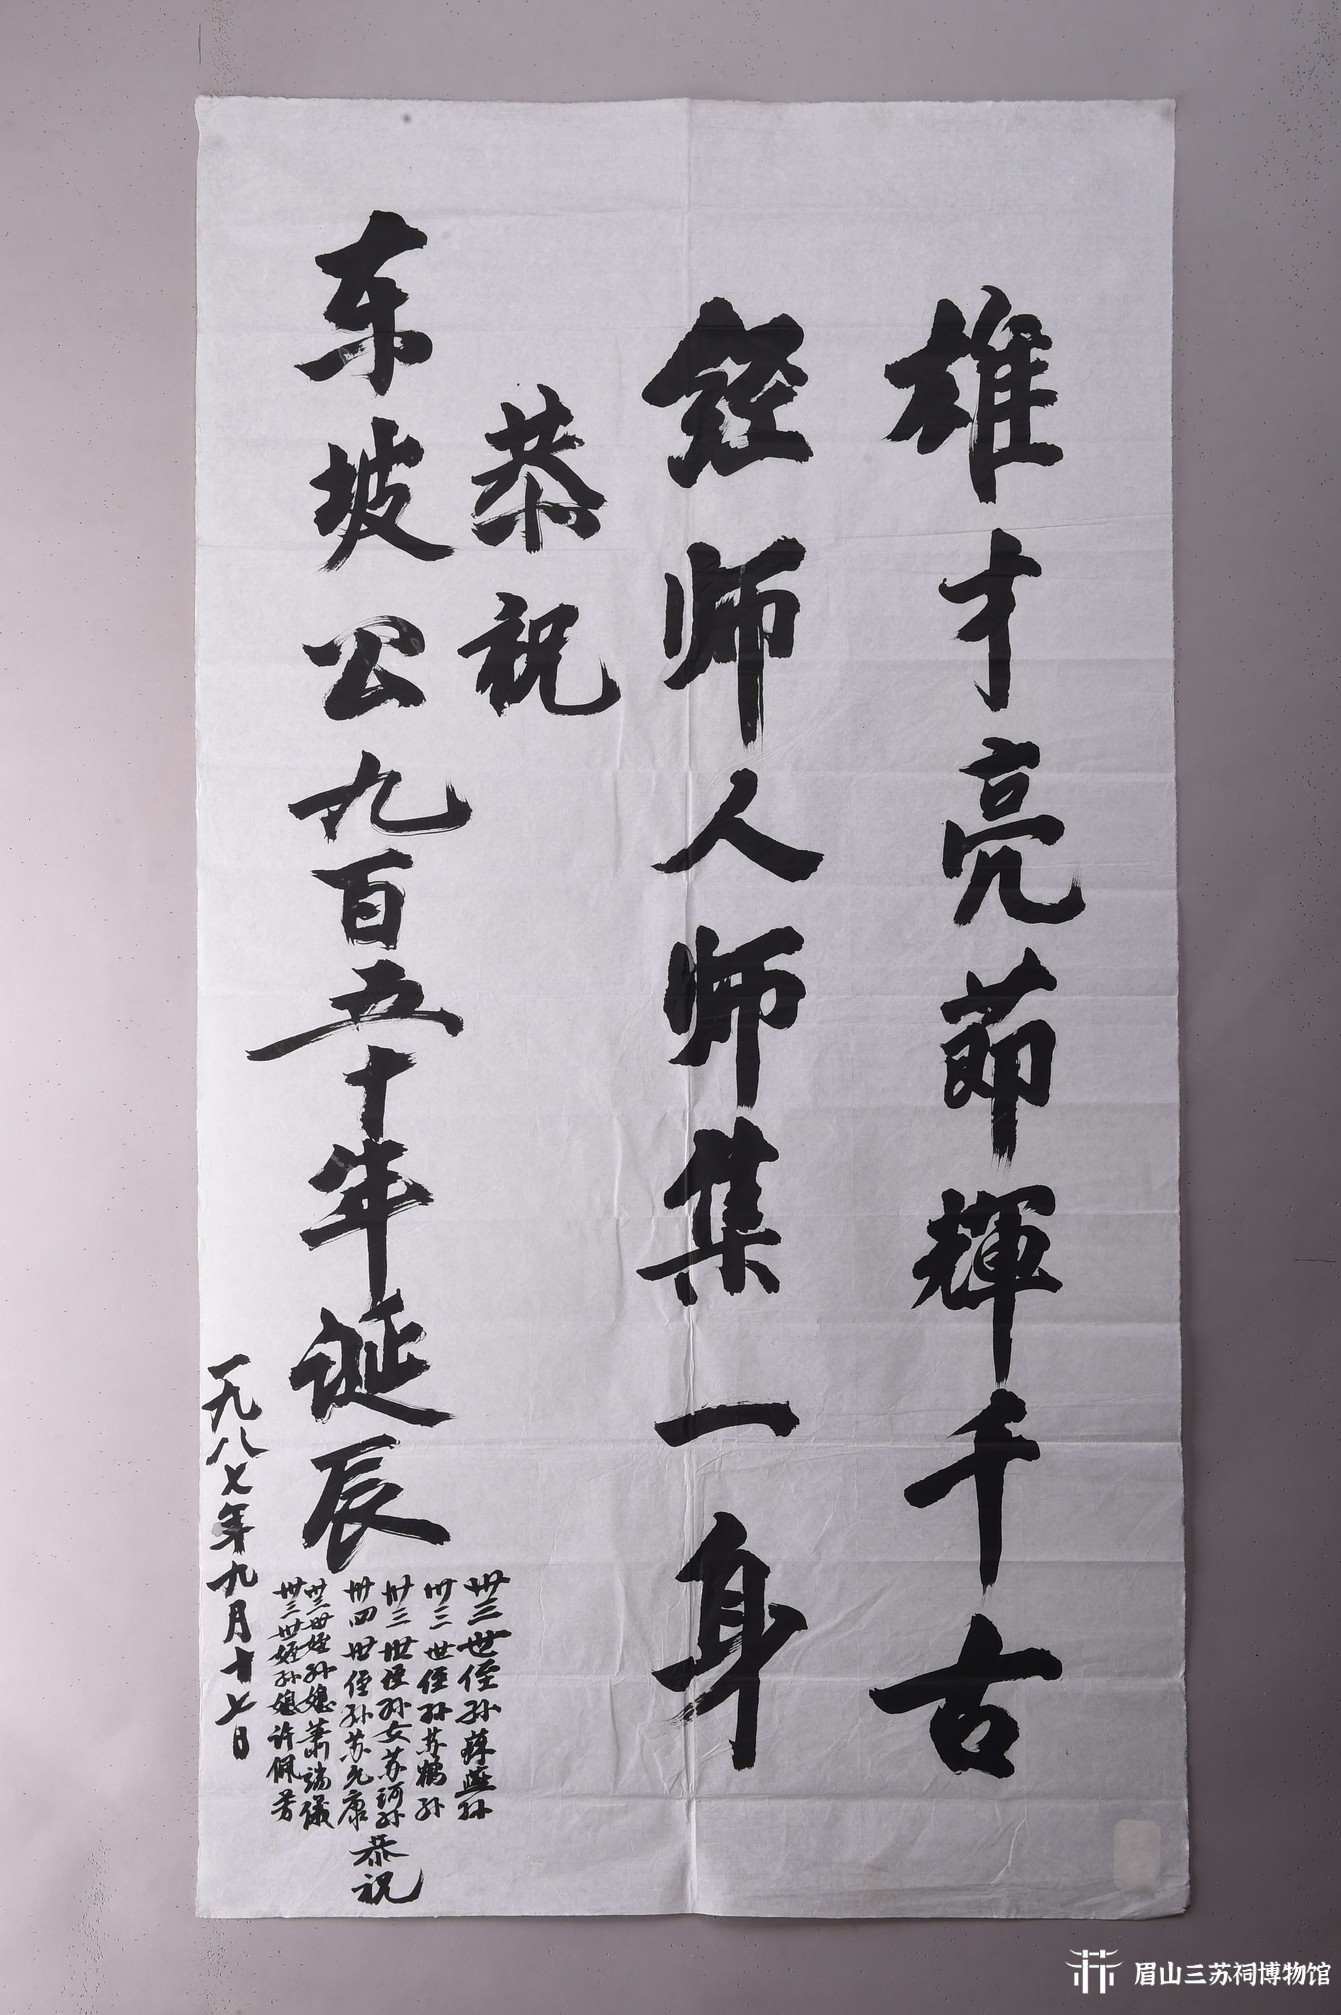 雄才亮节輝千古
经师人师集一身
恭祝
东坡公九百五十年诞辰
卅三世侄孙苏孙
卅三世侄孙苏鹤孙
卅三世侄孙女苏珂孙
卅四世侄孙苏允康
卅三世侄孙媳萧端儀
卅三世侄孙媳许佩芳
恭祝
一九八七年九月十七日
眉山三苏祠博物馆